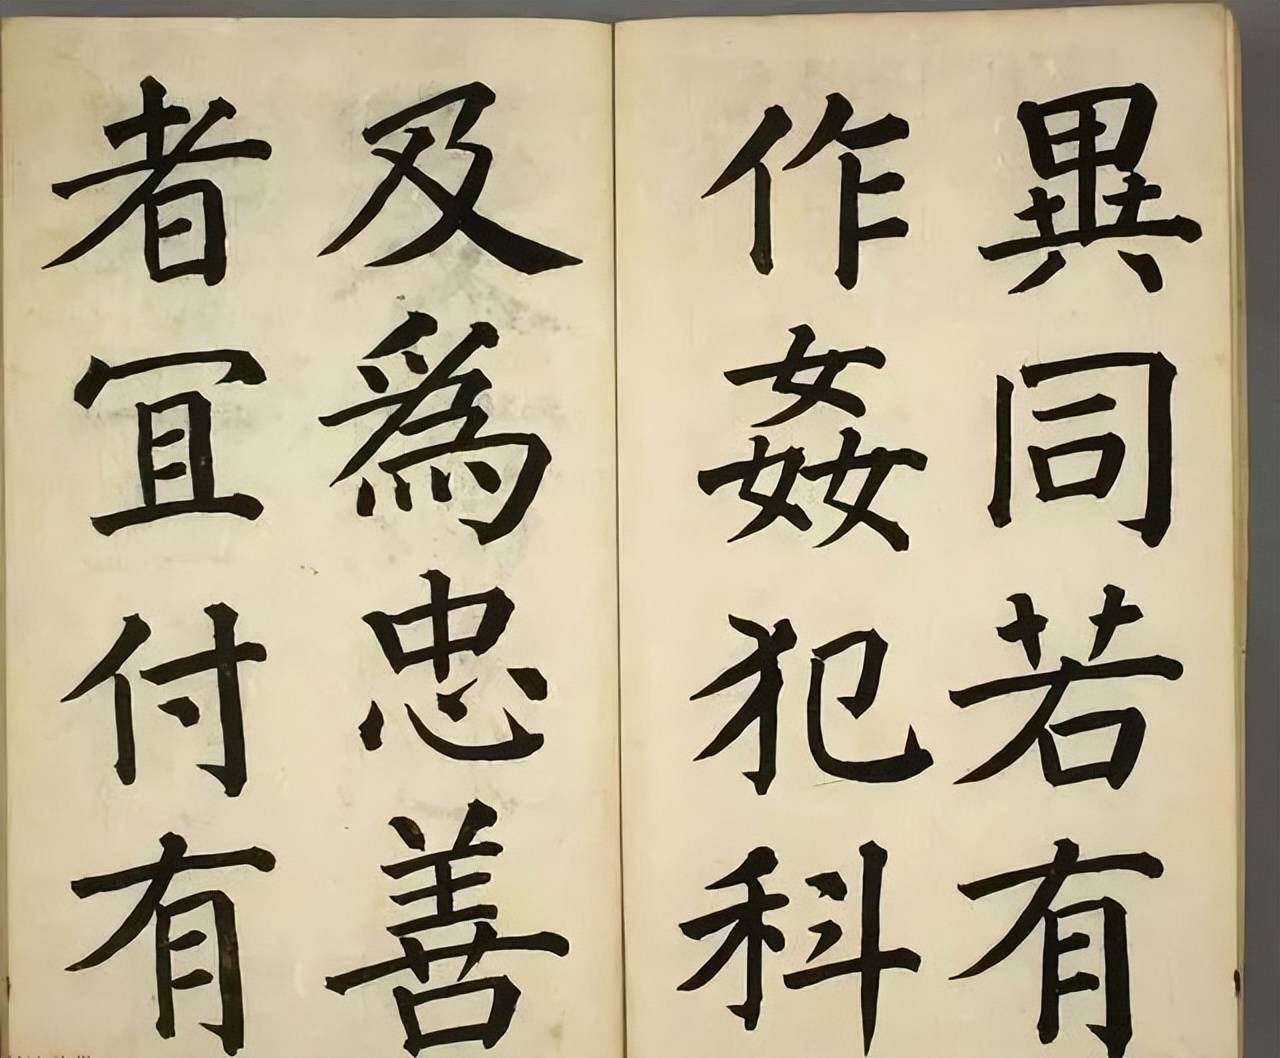 異同若有
作姦犯科
及爲忠善
者冝付有